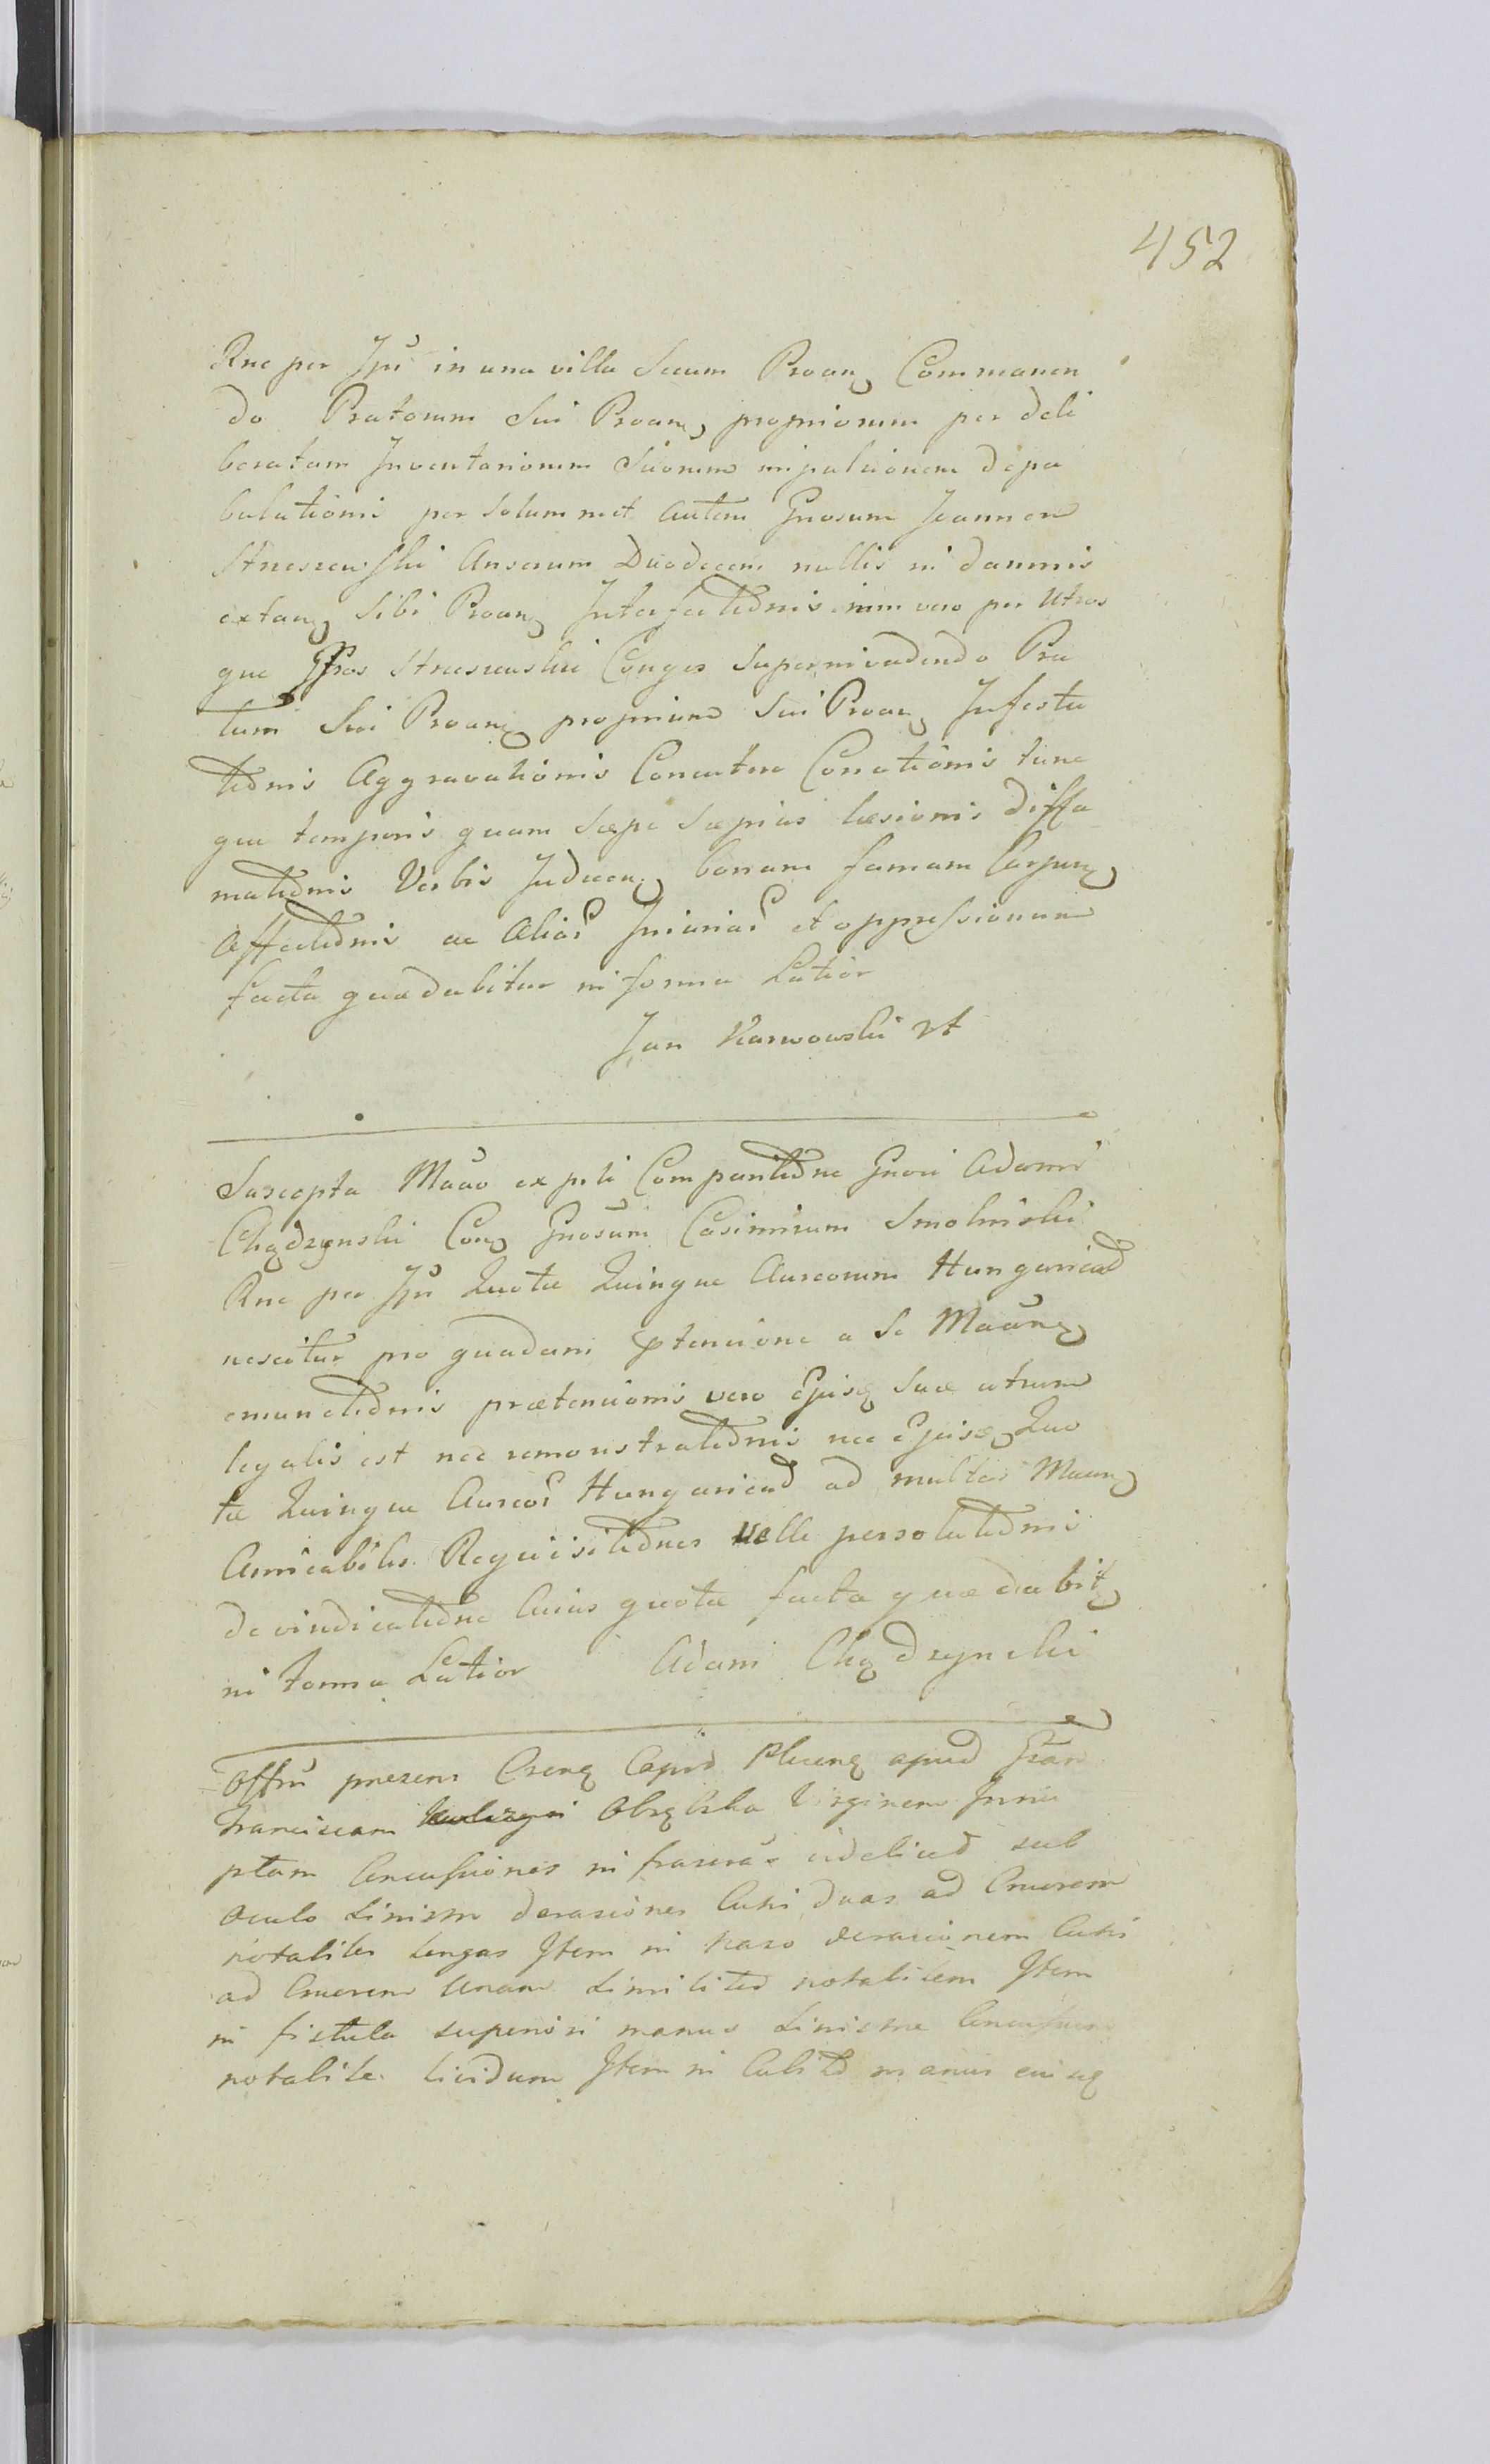 452
Rne per Ipū in una villa Secum Proan Commanen
do Pratorum Sui Proan propriorum per deli
beratam Inventariorum Suorum impulsionem depa
bulationis per Solummet autem Gnosum Joannem
Struszewski Anserum Duodecem nullis in damnis
extan Sibi Proan Interfectionis imm vero per Utros
que Gnos Struszewskie Conges Superinvadendo Pra
tum Sui Proan proprium Sui Proan Infesta
tionis Aggravationis Concutere Conationis tunc
que temporis quam Saepe Saepius laesionis diffa
mationis Verbis Inducen bonam famam Carpen
Affectionis ac Alias Injurias et oppressionum
facta quae dabitur in forma Latior
Jan Karwowski
Suscepta Maāo ex pti Comparitione Gnosi Adami
Chądzynski Con Gnosum Casimirum Smolinski
Rne per Ipū Quotae Quinque Aureorum Hungarical
nescitur pro quadam ptensione a Se Maāne
emunctionis praetensionis vero Ejusq Suae utrum
legalis est nec remonstrationis nec Ejusq Quo
tae Quinque Aureos Hungarical ad multas Maan
Amicabiles Requisitiones velle persolutionis
de vindicatione Cuius quotae facta quae dabit
in forma Latior Adam Chądzynski
Offrū praesens Crenq Capūd Plecenq apud Gnam
Franciscam Obrębska Virginem Innu
ptam Concussiones in facie videlicet sub
oculo Sinistro derasiones Cutis duas ad Cruorem
notabiles longas Item in naso derasionem Cutis
ad Cruorem Unam Similiter notabilem Item
in fistula superiori manus Sinistrae Concussum
notabile lividum Item in Cubito manus eiusq